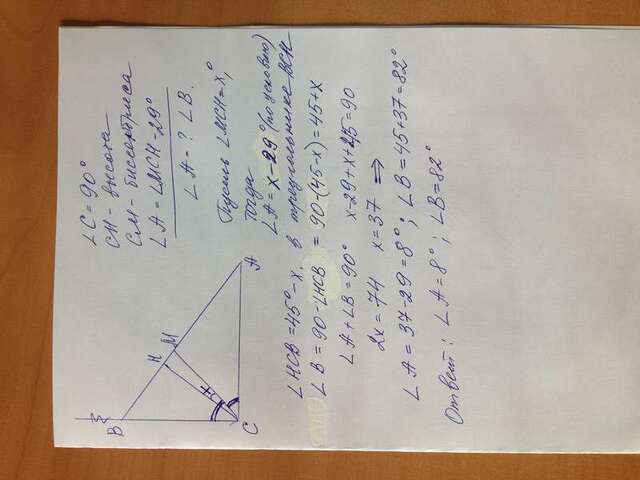 B
H
M
x
C
A
∠C = 90°
CH - высота
CM - биссектриса
∠A = ∠MCH - 29°
∠A - ? ∠B.
Пусть ∠MCH = x°,
тогда
∠A = x - 29° (по условию)
∠HCB = 45° - x, в треугольнике BCH
∠B = 90 - ∠HCB = 90 - (45 - x) = 45 + x
∠A + ∠B = 90° x - 29 + x + 45 = 90
2x = 74 x = 37 ⇒
∠A = 37 - 29 = 8° ; ∠B = 45 + 37 = 82°
Ответ : ∠A = 8° ; ∠B = 82°